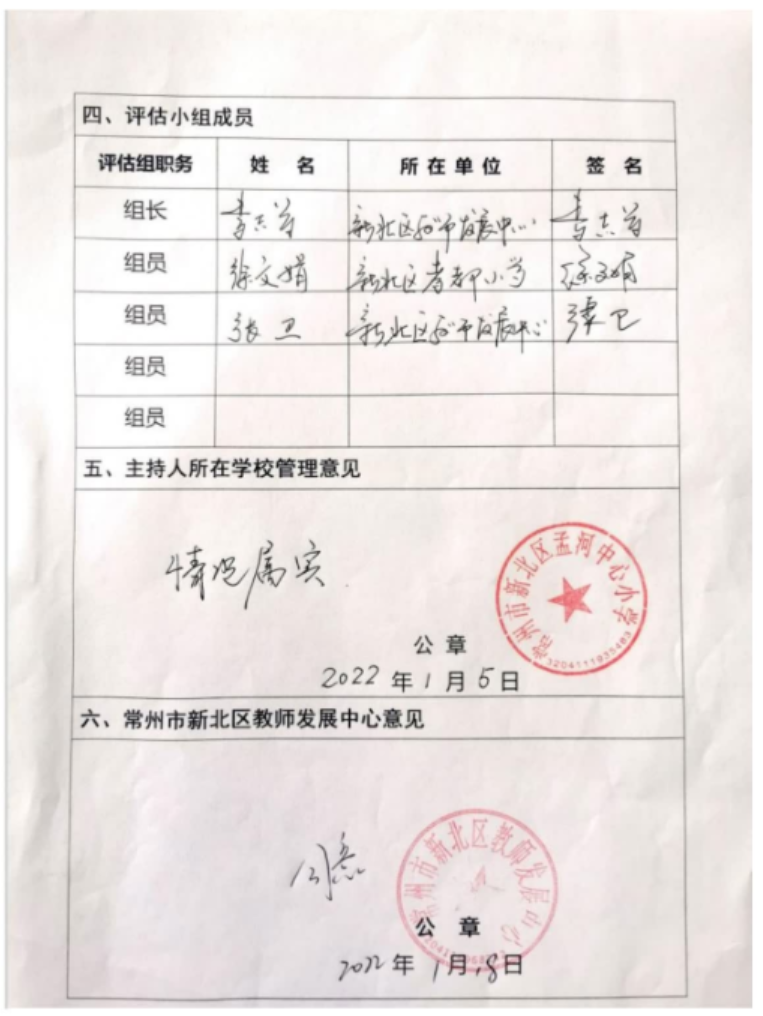 四、评估小组成员
评估组职务 姓 名 所在单位 签 名
组长 李志芳 新北区教师发展中心 李志芳
组员 徐文娟 新北区 小学 徐文娟
组员 张卫 新北区教师发展中心 张卫
组员
组员
五、主持人所在学校管理意见
情况属实
常州市新北区孟河中心小学
3204111035483
公章
2022年1月5日
六、常州市新北区教师发展中心意见
同意
常州市新北区教师发展中心
公章
2022年1月8日